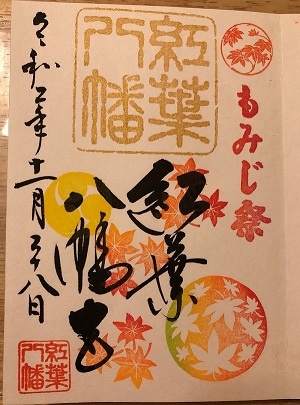 もみじ祭
紅葉
八幡
紅葉
八幡宮
令和二年十一月二十八日
紅葉
八幡